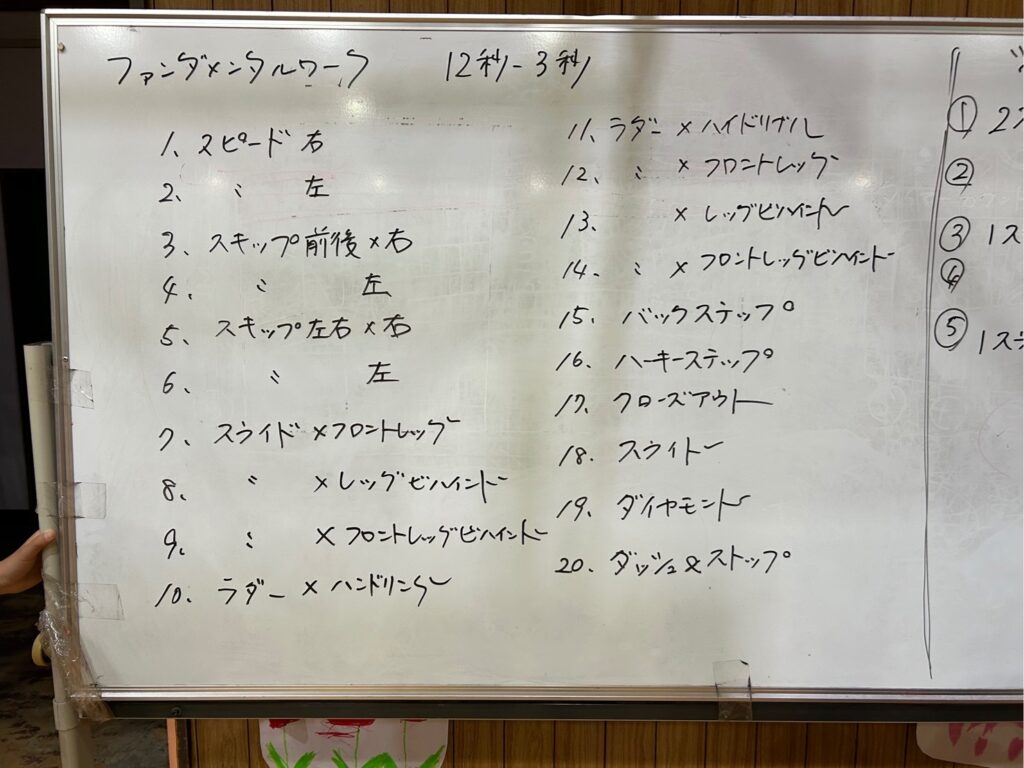 ファンダメンタルワーク 12秒-3秒
1. スピード 右
2. 〃 左
3. スキップ前後×右
4. 〃 左
5. スキップ左右×右
6. 〃 左
7. スライド×フロントレッグ
8. 〃 ×レッグビハインド
9. 〃 ×フロントレッグビハインド
10. ラダー×ハンドリング
11. ラダー×ハイドリブル
12. 〃 ×フロントレッグ
13. ×レッグビハインド
14. 〃 ×フロントレッグビハインド
15. バックステップ
16. ハーキーステップ
17. クローズアウト
18. スライド
19. ダイヤモンド
20. ダッシュ&ストップ
① 2ス
②
③ 1ス
④
⑤ 1ステ